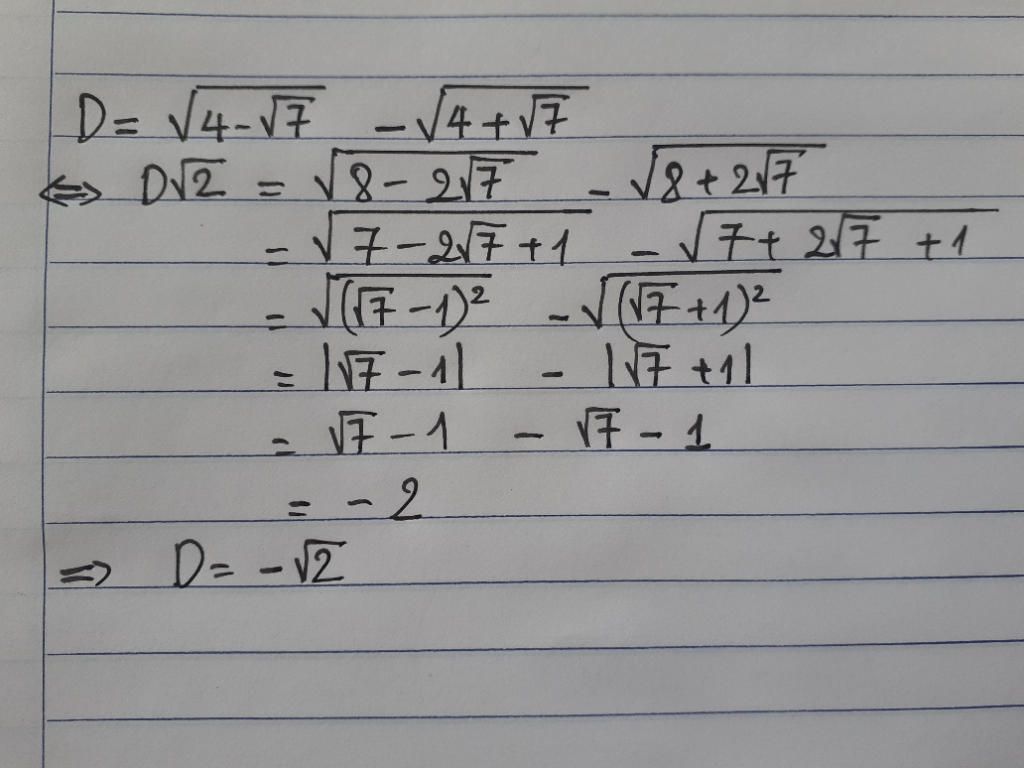 D = √(4-√7) - √(4+√7)
⇔ D√2 = √(8-2√7) - √(8+2√7)
= √(7-2√7+1) - √(7+2√7+1)
= √((√7-1)²) - √((√7+1)²)
= |√7-1| - |√7+1|
= √7-1 - √7-1
= -2
⇒ D = -√2